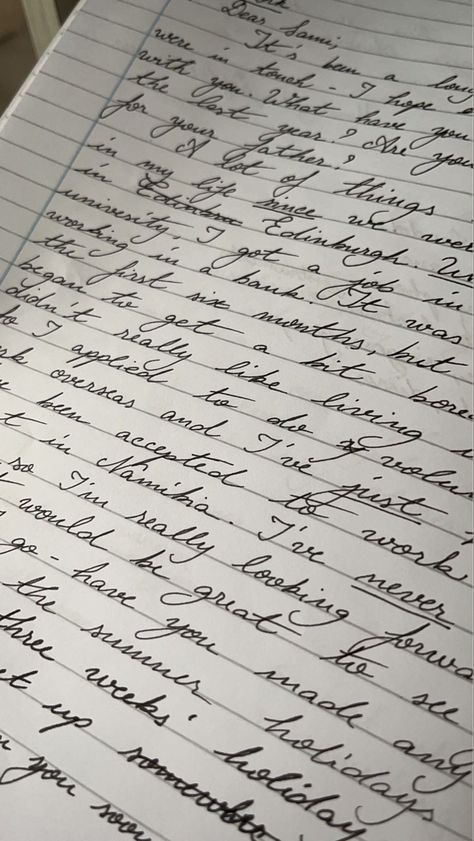 Dear Sami,
It's been a long
were in touch - I hope
with you. What have you
the last year? Are you
for your father?
A lot of things
in my life since we were
in Edinburgh.
university, I got a job in
working in a bank. It was
the first six months, but
began to get a bit bored
didn't really like living
I applied to do volun
overseas and I've just
been accepted to work
in Namibia. I've never
so I'm really looking forwa
would be great to see
go - have you made any
the summer holidays
three weeks' holiday
up
you soon